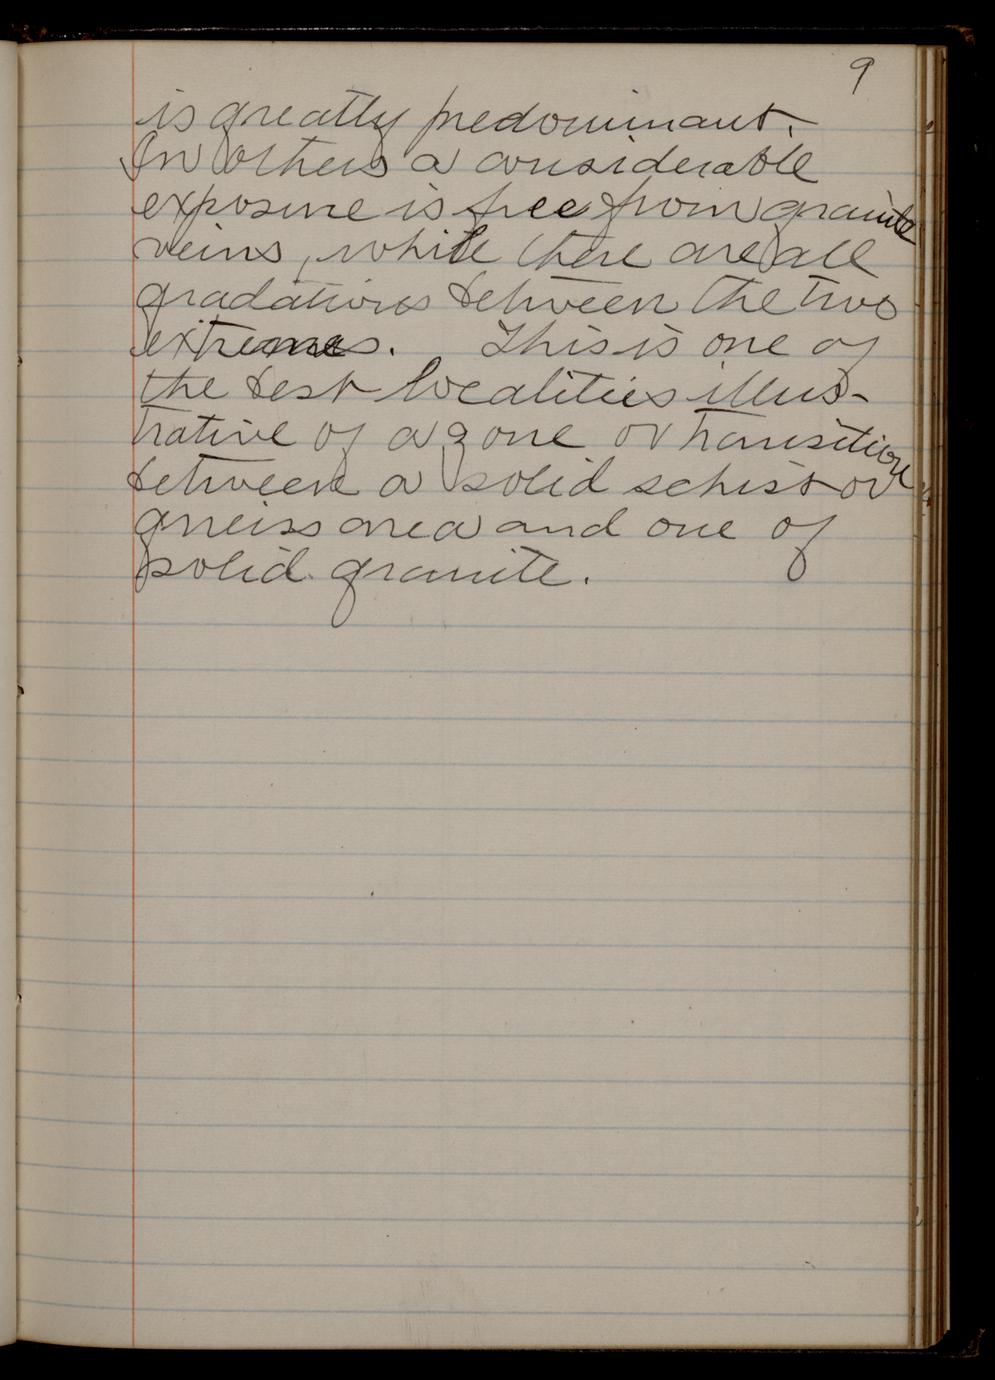 9
is greatly predominant.
In others a considerable
exposure is free from granite
veins, while there are all
gradations between the two
extremes. This is one of
the best localities illus-
trative of a zone of transition
between a solid schist or
gneiss area and one of
solid granite.